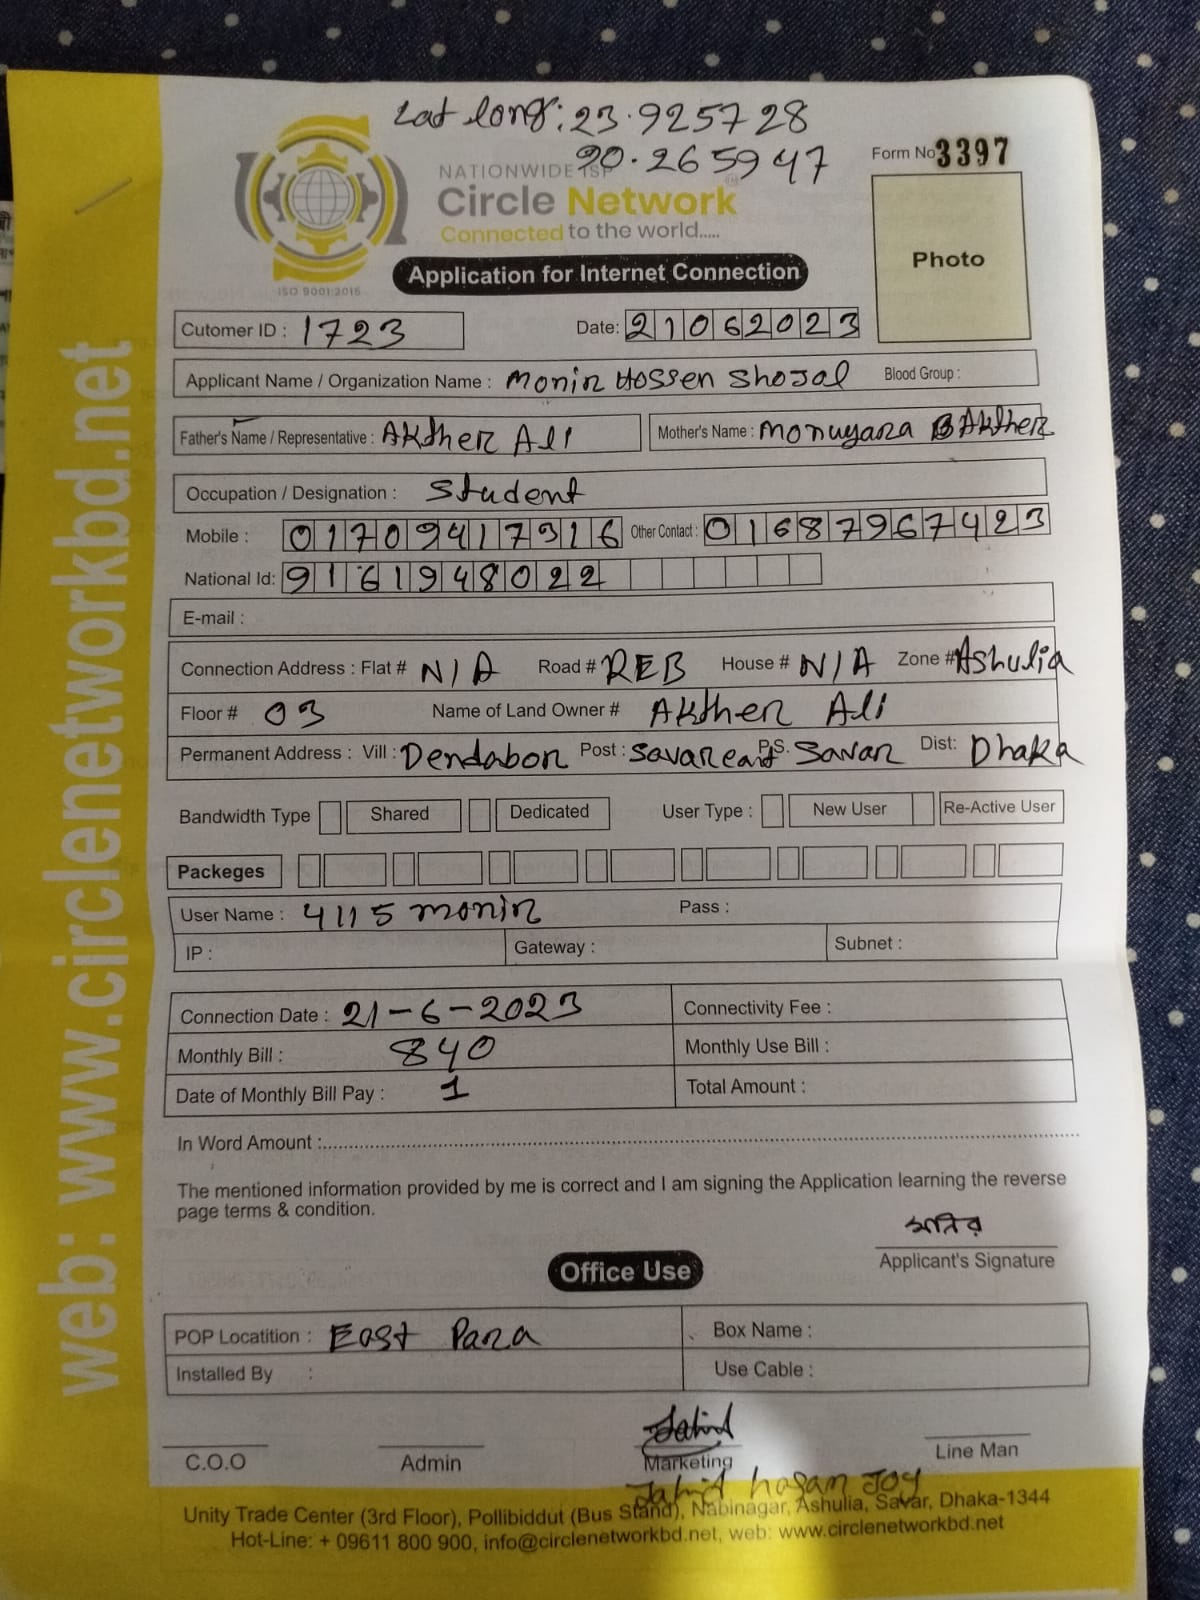 Lat long: 23.925728
90.265947
Form No 3397
NATIONWIDE ISP
Circle Network
Connected to the world.....
ISO 9001:2015
Photo
Application for Internet Connection
Cutomer ID : 1723 Date: 21062023
Applicant Name / Organization Name : Monir Hossen Shojal Blood Group :
Father's Name / Representative : Akther Ali Mother's Name : Monuyara Akther
Occupation / Designation : Student
Mobile : 01709417316 Other Contact : 01687967423
National Id: 9161948022
E-mail :
Connection Address : Flat # N/A Road # REB House # N/A Zone # Ashulia
Floor # 03 Name of Land Owner # Akther Ali
Permanent Address : Vill : Dendabor Post : Savar cant P.S. Savar Dist: Dhaka
Bandwidth Type Shared Dedicated User Type : New User Re-Active User
Packeges
User Name : 4115 monir Pass :
IP : Gateway : Subnet :
Connection Date : 21-6-2023 Connectivity Fee :
Monthly Bill : 840 Monthly Use Bill :
Date of Monthly Bill Pay : 1 Total Amount :
In Word Amount :
The mentioned information provided by me is correct and I am signing the Application learning the reverse
page terms & condition.
মনির
Applicant's Signature
Office Use
POP Locatition : East Para Box Name :
Installed By : Use Cable :
Jahid
C.O.O Admin Marketing Line Man
Jahid hasan Joy
Unity Trade Center (3rd Floor), Pollibiddut (Bus Stand), Nabinagar, Ashulia, Savar, Dhaka-1344
Hot-Line: + 09611 800 900, info@circlenetworkbd.net, web: www.circlenetworkbd.net
web: www.circlenetworkbd.net